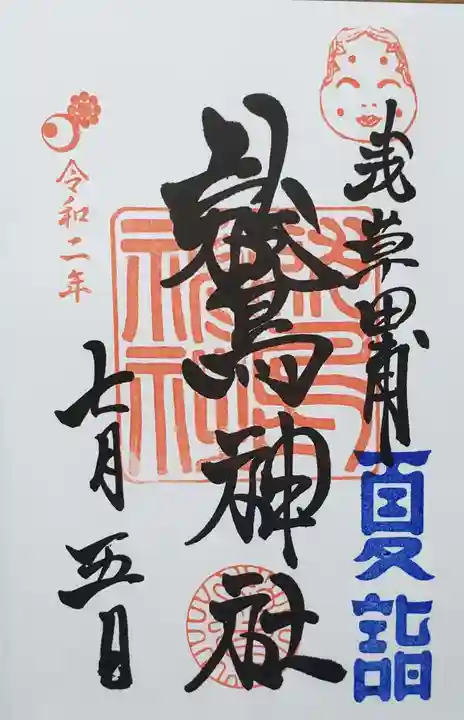 浅草田甫
夏詣
鷲神社
令和二年
七月五日